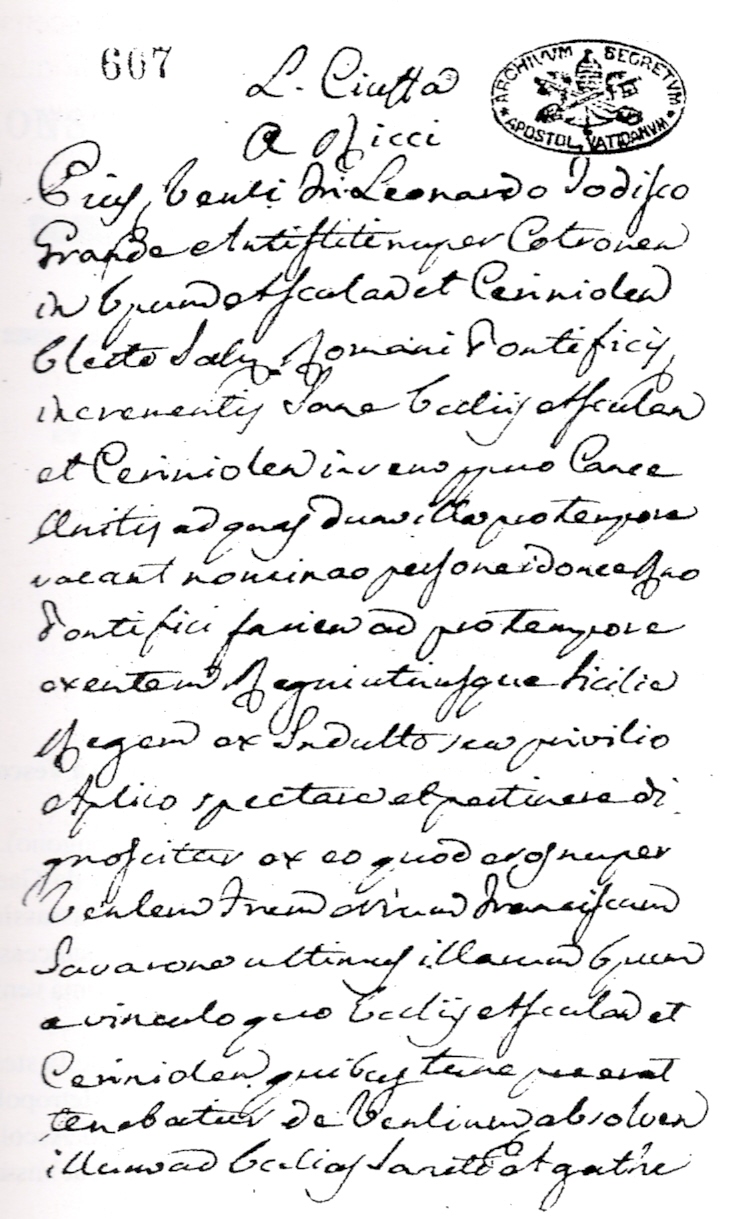 607
L. Ciuffa
A Ricci
ARCHIVVM SECRETVM APOSTOL. VATICANVM
Pius Venli Fri Leonardo Todisco
Grande Antistiti nuper Cotronen
in Epum Asculan et Ceriniolen
Electo Salm Romani Pontificis
incrementis Sane Ecclijs Asculan
et Ceriniolen invicem perpetuo Canice
Unitis ad quas dum illa pro tempore
vacant nominao persone idonee Rno
Pontifici facien ad pro tempore
exentem Regni utriusque Sicilie
Regem ex Indulto seu privilio
Aplico spectare et pertinere di
gnoscitur ex eo quod nos nuper
Venlem Frem nrum Franciscum
Savarone ultimus illarum Epum
a vinculo quo Ecclijs Asculan et
Ceriniolen quibus tunc preerat
tenebatur de Venlium absolven
illum ad Eccliam Sancte Agathe